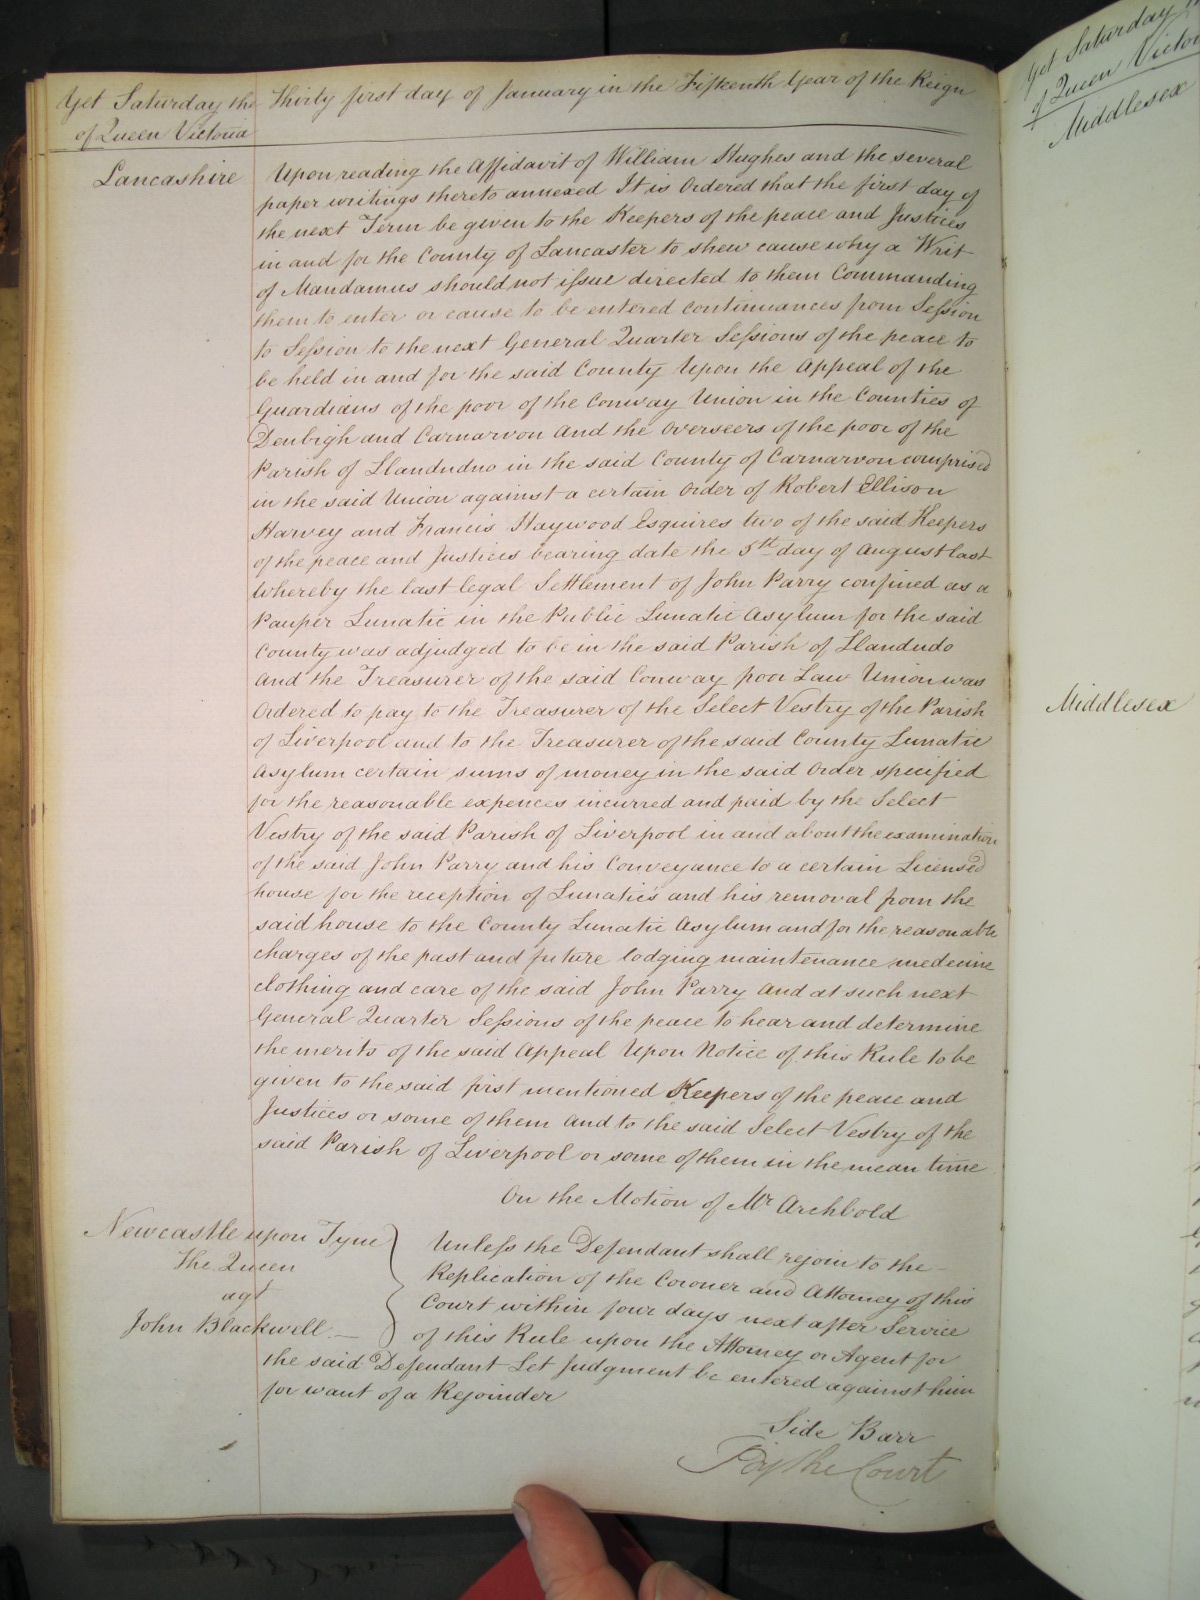 Yet Saturday the Thirty first day of January in the Fifteenth Year of the Reign
of Queen Victoria
Lancashire
Upon reading the Affidavit of William Hughes and the several
paper writings thereto annexed It is Ordered that the first day of
the next Term be given to the Keepers of the peace and Justices
in and for the County of Lancaster to shew cause why a Writ
of Mandamus should not issue directed to them Commanding
them to enter or cause to be entered continuances from Session
to Session to the next General Quarter Sessions of the peace to
be held in and for the said County Upon the Appeal of the
Guardians of the poor of the Conway Union in the Counties of
Denbigh and Carnarvon And the Overseers of the poor of the
Parish of Llandudno in the said County of Carnarvon comprised
in the said Union against a certain Order of Robert Ellison
Harvey and Francis Haywood Esquires two of the said Keepers
of the peace and Justices bearing date the 5th day of August last
whereby the last legal Settlement of John Parry confined as a
Pauper Lunatic in the Public Lunatic Asylum for the said
County was adjudged to be in the said Parish of Llandudo
And the Treasurer of the said Conway poor Law Union was
Ordered to pay to the Treasurer of the Select Vestry of the Parish
of Liverpool and to the Treasurer of the said County Lunatic
Asylum certain sums of money in the said Order specified
for the reasonable expences incurred and paid by the Select
Vestry of the said Parish of Liverpool in and about the examination
of the said John Parry and his Conveyance to a certain Licensed
house for the reception of Lunatics and his removal from the
said house to the County Lunatic Asylum and for the reasonable
charges of the past and future lodging maintenance medicine
clothing and care of the said John Parry And at such next
General Quarter Sessions of the peace to hear and determine
the merits of the said Appeal Upon Notice of this Rule to be
given to the said first mentioned Keepers of the peace and
Justices or some of them And to the said Select Vestry of the
said Parish of Liverpool or some of them in the mean time
On the Motion of Mr Archbold
Newcastle upon Tyne
The Queen
agt
John Blackwell
Unless the Defendant shall rejoin to the
Replication of the Coroner and Attorney of this
Court within four days next after Service
of this Rule upon the Attorney or Agent for
the said Defendant Let Judgment be entered against him
for want of a Rejoinder
Side Barr
By the Court
Yet Saturday
of Queen
Middlesex
Middlesex